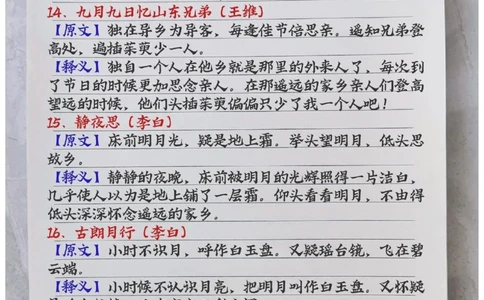 14、九月九日忆山东兄弟（王维）
【原文】独在异乡为异客，每逢佳节倍思亲。遥知兄弟登
高处，遍插茱萸少一人。
【释义】独自一个人在他乡就是那里的外来人了，每次到
了节日的时候更加思念亲人。在那遥远的家乡亲人们登高
望远的时候，他们头插茱萸偏偏只少了我一个人吧！
15、静夜思（李白）
【原文】床前明月光，疑是地上霜。举头望明月，低头思
故乡。
【释义】静静的夜晚，床前被明月的光辉照得一片洁白，
几乎使人以为是地上铺了一层霜。仰头看看明月，不由得
低头深深怀念遥远的家乡。
16、古朗月行（李白）
【原文】小时不识月，呼作白玉盘。又疑瑶台镜，飞在碧
云端。
【释义】小时候不认识月亮，把明月叫作白玉盘。又怀疑